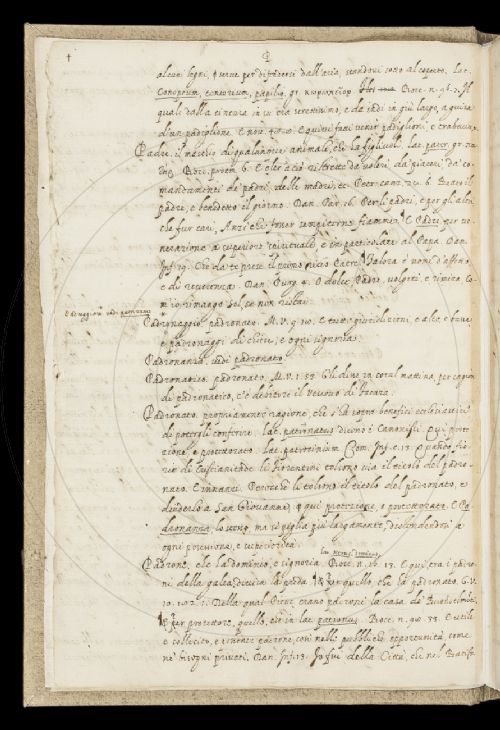 P
alcuni legni, e serve per difendersi dall'aria, standovi sotto al coperto. Lat.
Conopeum, tentorium, papilio, gr. Bocc. n. 96. 7. Il
quale dalla cintura in su era strettissimo, e da indi in giù largo, a guisa
d'un padiglione. E nov. e quivi fatti venir padiglioni, e trabacche
Padre. il maschio di qualunque animale, che ha figliuoli. lat. pater, gr.
Bocc. proem. 6. E oltr' a ciò ristrette da' voleri, da' piaceri, da' co-
mandamenti de' padri, delle madri, ec. Petr. canz. 6. Beato il
padre, e benedetto il giorno. Dan. Par. 14. Per li padri, e per gli altri
che fur cari, Anzi che fosser sempiterne fiamme. E Padre per ve-
nerazione a superiore spirituale, e in particolare al Papa. Dan.
Inf. 19. Che da te prese il primo ricco Patre. Talora è nome d'affetto
e di reverenza. Dan. Purg. 4. O dolce Padre, volgiti, e rimira Co-
m' io rimango sol, se non ristai.
Padronaggio. padronato. M.V. 9. e giuridizioni, e
e padronaggi di chiese, e ogni signoria
Padronanza. vedi padronato.
Padronatico. padronato. M.V. 1. Gli dine in cotal mattina, per cagion
di padronatico, c'è debitore il Vescovo di
Padronato. propriamente ragione, che s'ha sopra benefici ecclesiastici
di potergli conferire. lat. patronatus dicono i Canonisti. Qui prote-
zione, e protettorato. lat. patrocinium Com. Inf. c. 13. Quando
li Fiorentini tolsono via il titolo del padro-
nato. E innanzi. Perocchè li tolsono il titolo del padronato, e
diederlo a San Giovanni, e qui protezione, e protettorato. E Pa-
dronanza, lo stesso, ma si piglia più largamente, distendendosi a
ogni possessione, e superiorità.
Padrone. che ha dominio, e signoria. Bocc. n. 16. 13. E qui tra i padro-
ni della galea, divisa la preda. per quello, che ha padronato. G.V.
10. Della qual Pieve erano padroni la casa de' Buondelmonti
per protettore, quello, che in lat. patronus. Bocc. n. 98. E utile
e sollecito, e possente padrone, così nelle pubbliche opportunità, come
ne' bisogni privati. Dan. Inf. 13. Io fui della Città, che nel Batista